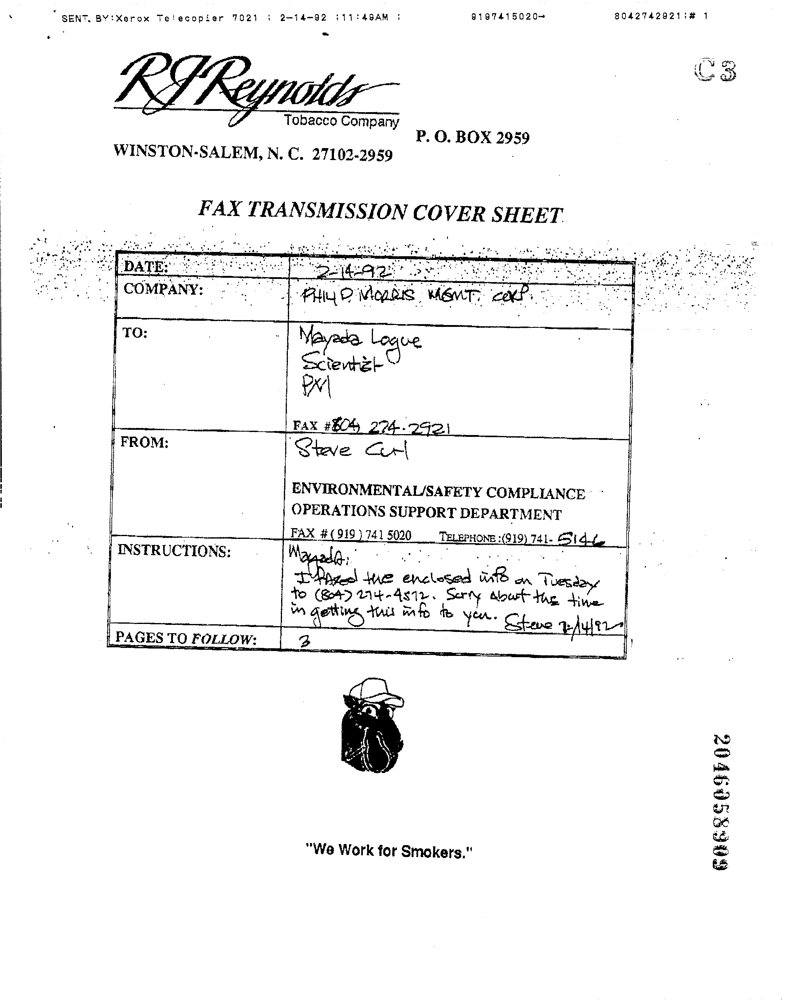 SENT BY:Xerox Telecopier 7021 ; 2-14-92 ;11:49AM ; 9197415020→ 8042742921;# 1
C3
RJReynolds
Tobacco Company
P. O. BOX 2959
WINSTON-SALEM, N. C. 27102-2959
FAX TRANSMISSION COVER SHEET
DATE: 2-14-92
COMPANY: PHILIP MORRIS MGMT. CORP.
TO: Mayada Logue
Scientist
PM
FAX # (804) 274-2921
FROM: Steve Curl
ENVIRONMENTAL/SAFETY COMPLIANCE
OPERATIONS SUPPORT DEPARTMENT
FAX # ( 919 ) 741 5020 TELEPHONE :(919) 741- 5146
INSTRUCTIONS: Mayada:
I faxed the enclosed info on Tuesday
to (804) 274-4572. Sorry about the time
in getting this info to you. Steve 2/14/92
PAGES TO FOLLOW: 3
"We Work for Smokers."
2046058909